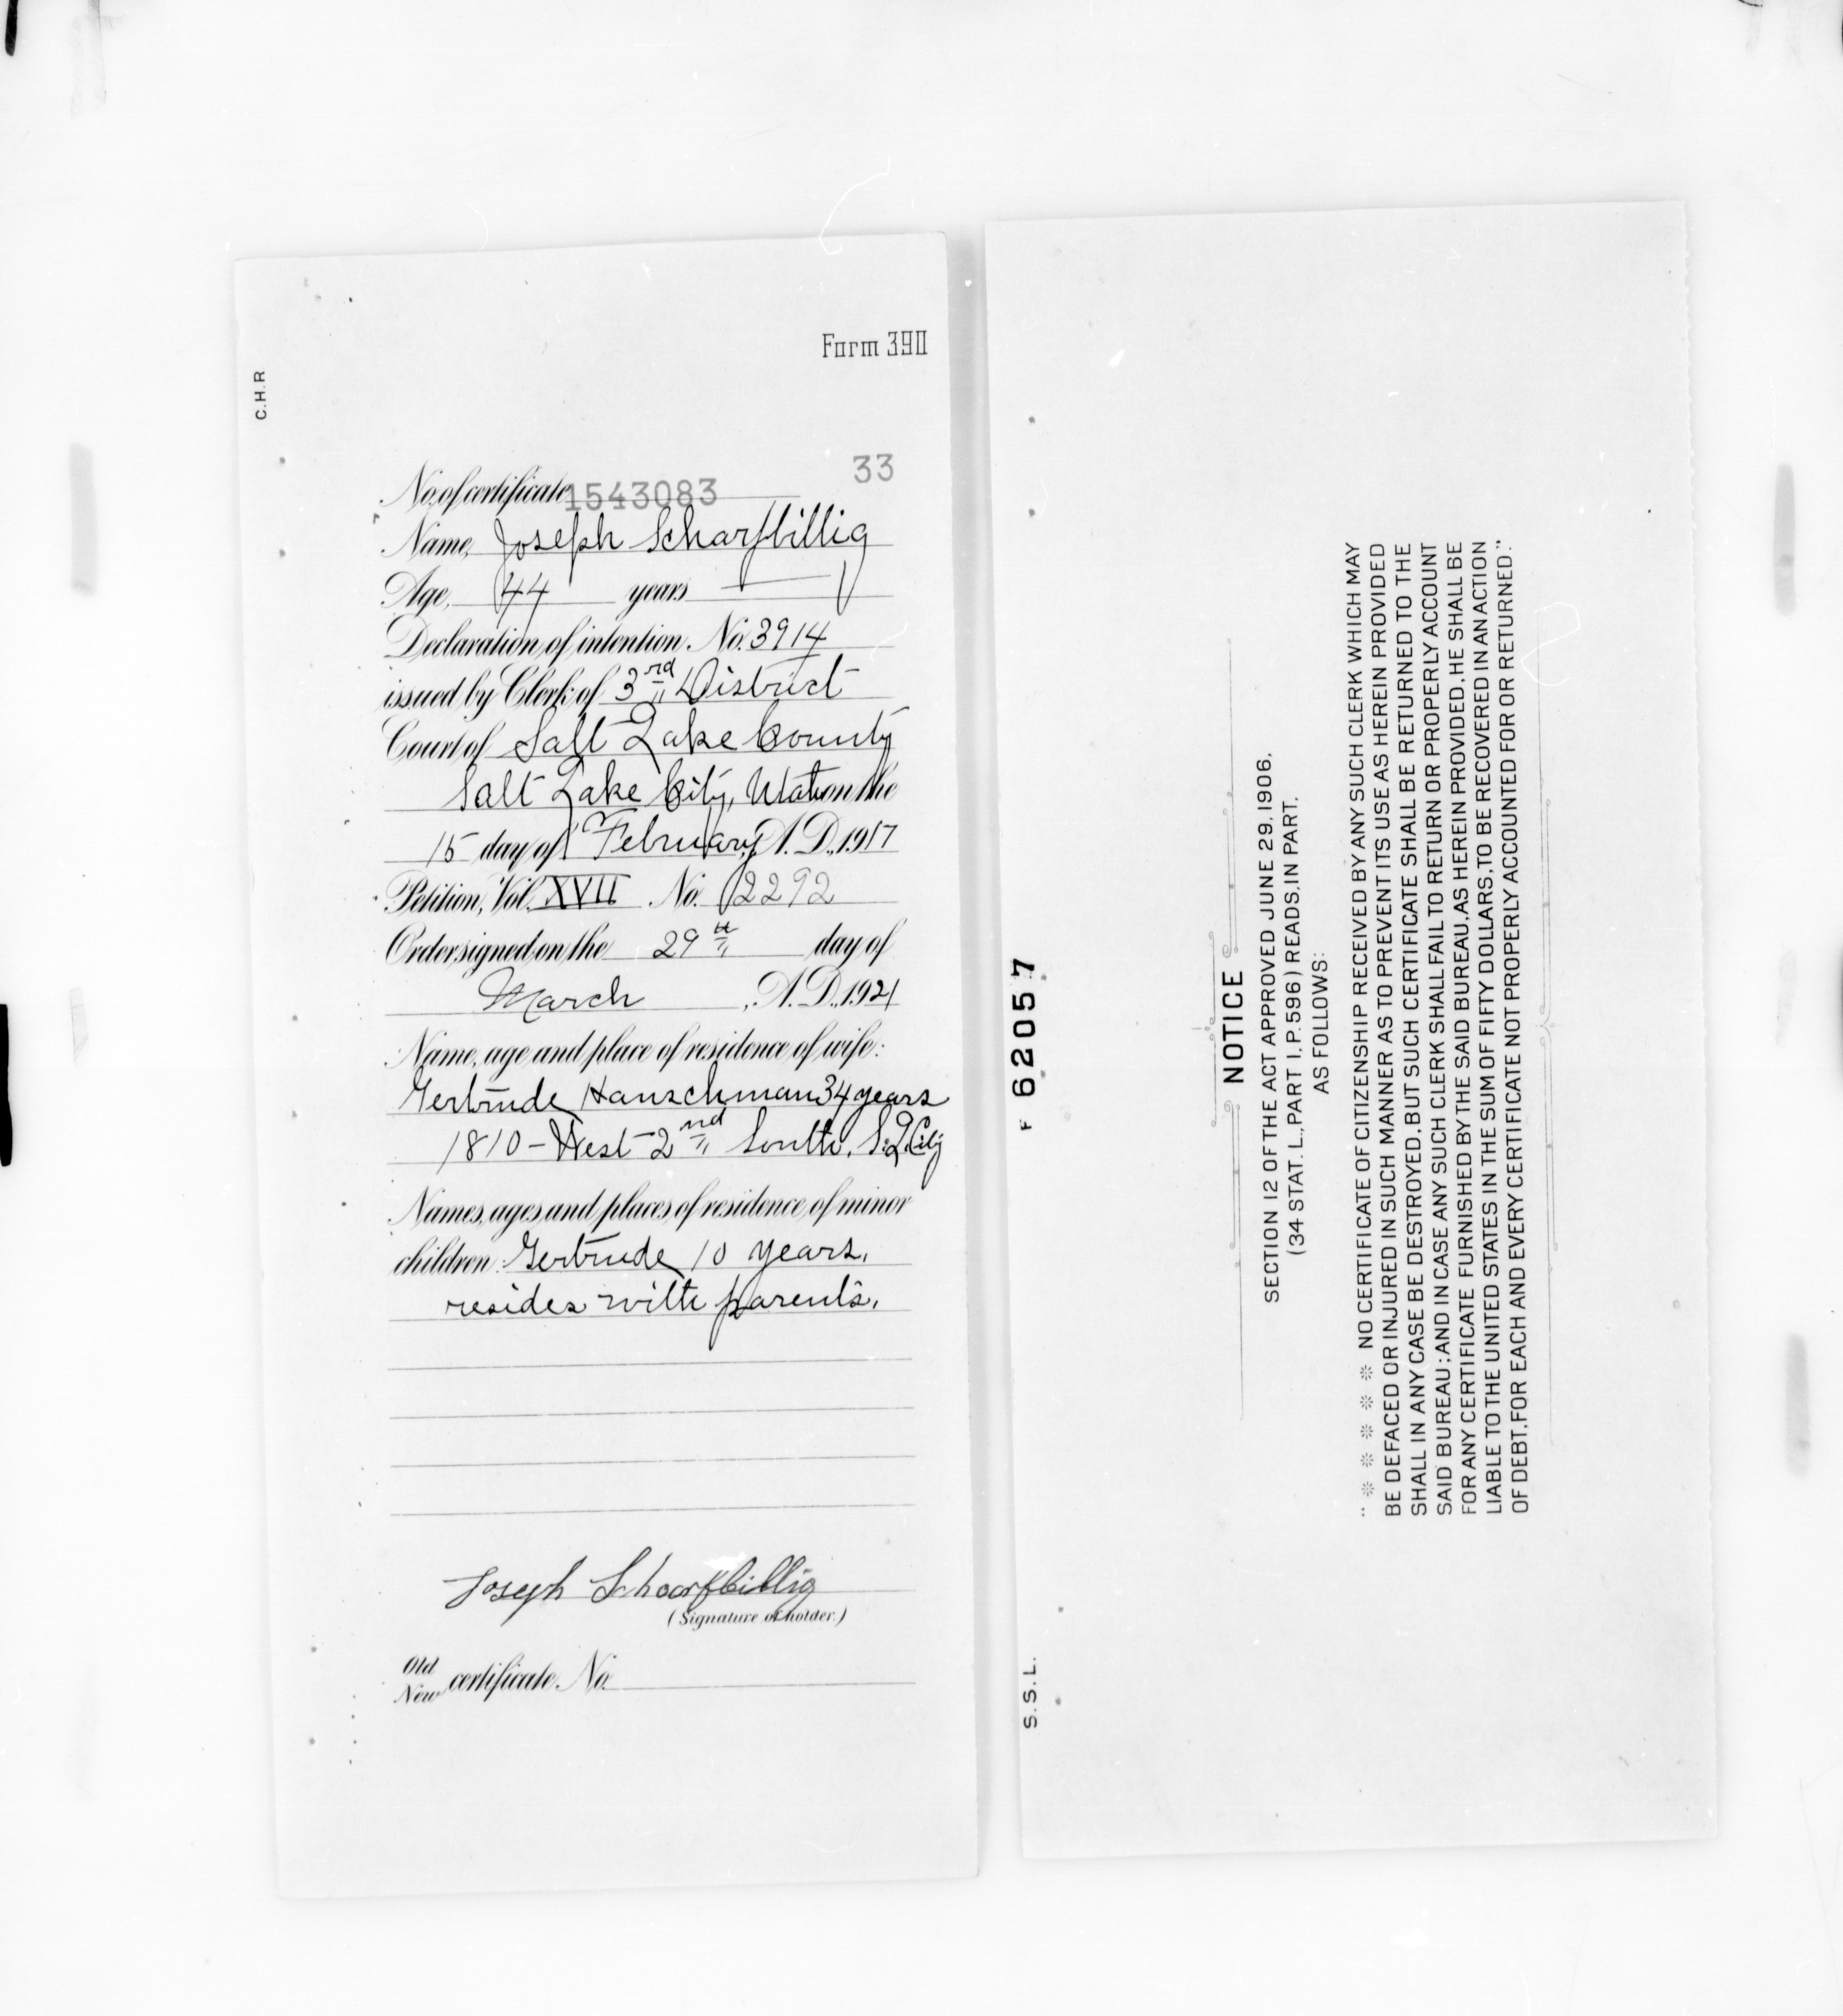 Form 390
C.H.R
33
No. of certificate 1543083
Name, Joseph Scharfbillig
Age, 44 years
Declaration of intention, No. 3914
issued by Clerk of 3rd District
Court of Salt Lake County
Salt Lake City, Utah on the
15 day of February, A.D., 1917
Petition, Vol. XVII No. 2292
Order signed on the 29th day of
March, A.D., 1921
Name, age and place of residence of wife:
Gertrude Hanschman 34 years
1810 - West - 2nd South, S.L. City
Names, ages and places of residence of minor
children: Gertrude 10 years,
resides with parents.
Joseph Scharfbillig
(Signature of holder.)
Old
New certificate No.
F 62057
S.S.L.
NOTICE
SECTION 12 OF THE ACT APPROVED JUNE 29, 1906,
(34 STAT. L., PART 1, P. 596) READS, IN PART,
AS FOLLOWS:
"* * * * * NO CERTIFICATE OF CITIZENSHIP RECEIVED BY ANY SUCH CLERK WHICH MAY
BE DEFACED OR INJURED IN SUCH MANNER AS TO PREVENT ITS USE AS HEREIN PROVIDED
SHALL IN ANY CASE BE DESTROYED, BUT SUCH CERTIFICATE SHALL BE RETURNED TO THE
SAID BUREAU; AND IN CASE ANY SUCH CLERK SHALL FAIL TO RETURN OR PROPERLY ACCOUNT
FOR ANY CERTIFICATE FURNISHED BY THE SAID BUREAU, AS HEREIN PROVIDED, HE SHALL BE
LIABLE TO THE UNITED STATES IN THE SUM OF FIFTY DOLLARS, TO BE RECOVERED IN AN ACTION
OF DEBT, FOR EACH AND EVERY CERTIFICATE NOT PROPERLY ACCOUNTED FOR OR RETURNED."